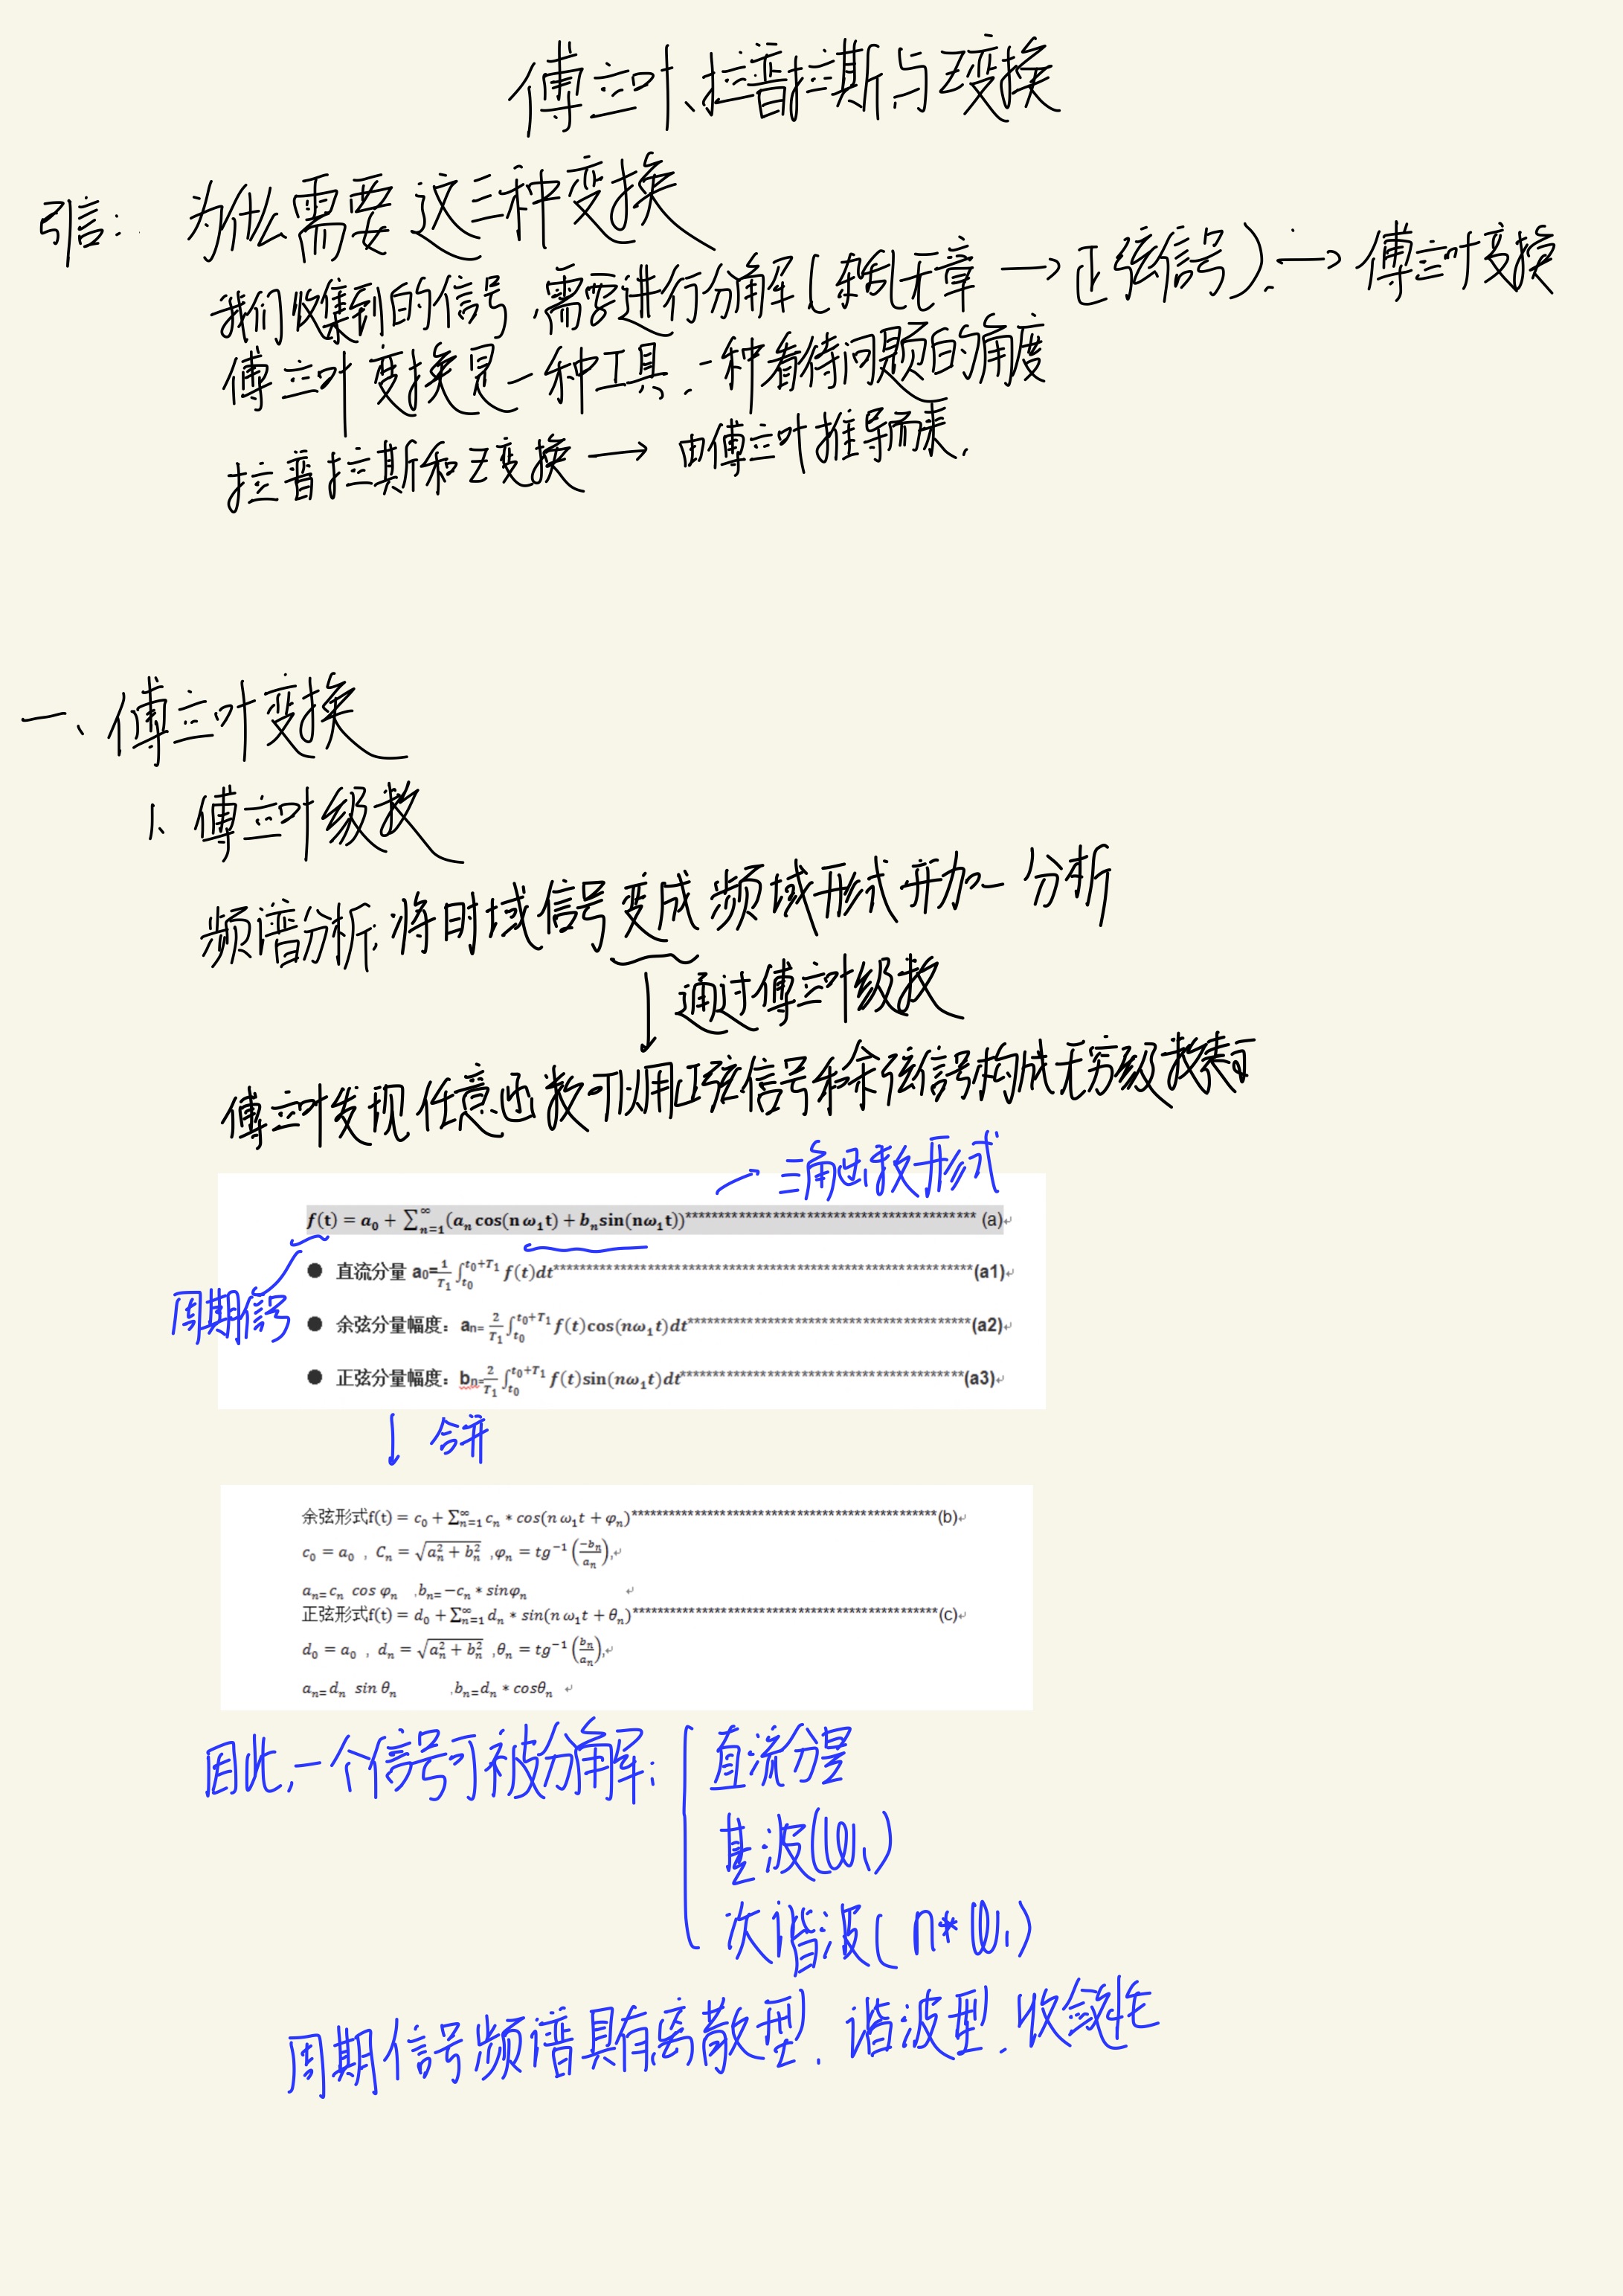 傅立叶、拉普拉斯与Z变换
引言： 为什么需要这三种变换
我们收集到的信号，需要进行分解(杂乱无章→正弦信号).→傅立叶变换
傅立叶变换是一种工具.一种看待问题的角度
拉普拉斯和Z变换→由傅立叶推导而来.
一、傅立叶变换
1、傅立叶级数
频谱分析:将时域信号变成频域形式并加一分析
↓通过傅立叶级数
傅立叶发现任意函数可以用正弦信号和余弦信号构成无穷级数表示
三角函数形式
f(t) = a₀ + ∑ₙ₌₁^∞(aₙ cos(n ω₁t) + bₙsin(nω₁t))******************************************** (a)
● 直流分量 a₀=1/T₁ ∫_{t₀}^{t₀+T₁} f(t)dt****************************************************************(a1)
周期信号
● 余弦分量幅度：aₙ= 2/T₁ ∫_{t₀}^{t₀+T₁} f(t)cos(nω₁t)dt*******************************************(a2)
● 正弦分量幅度：bₙ=2/T₁ ∫_{t₀}^{t₀+T₁} f(t)sin(nω₁t)dt*******************************************(a3)
↓ 合并
余弦形式f(t) = c₀ + ∑ₙ₌₁^∞ cₙ * cos(n ω₁t + φₙ)*************************************************(b)
c₀ = a₀ , Cₙ = √(aₙ² + bₙ²) ,φₙ = tg⁻¹(−bₙ/aₙ),
aₙ=cₙ cos φₙ ,bₙ=−cₙ * sinφₙ
正弦形式f(t) = d₀ + ∑ₙ₌₁^∞ dₙ * sin(n ω₁t + θₙ)*************************************************(c)
d₀ = a₀ , dₙ = √(aₙ² + bₙ²) ,θₙ = tg⁻¹(bₙ/aₙ),
aₙ=dₙ sin θₙ ,bₙ=dₙ * cosθₙ
因此,一个信号可被分解: 直流分量
基波(ω₁)
次谐波(n*ω₁)
周期信号频谱具有离散型.谐波型.收敛性